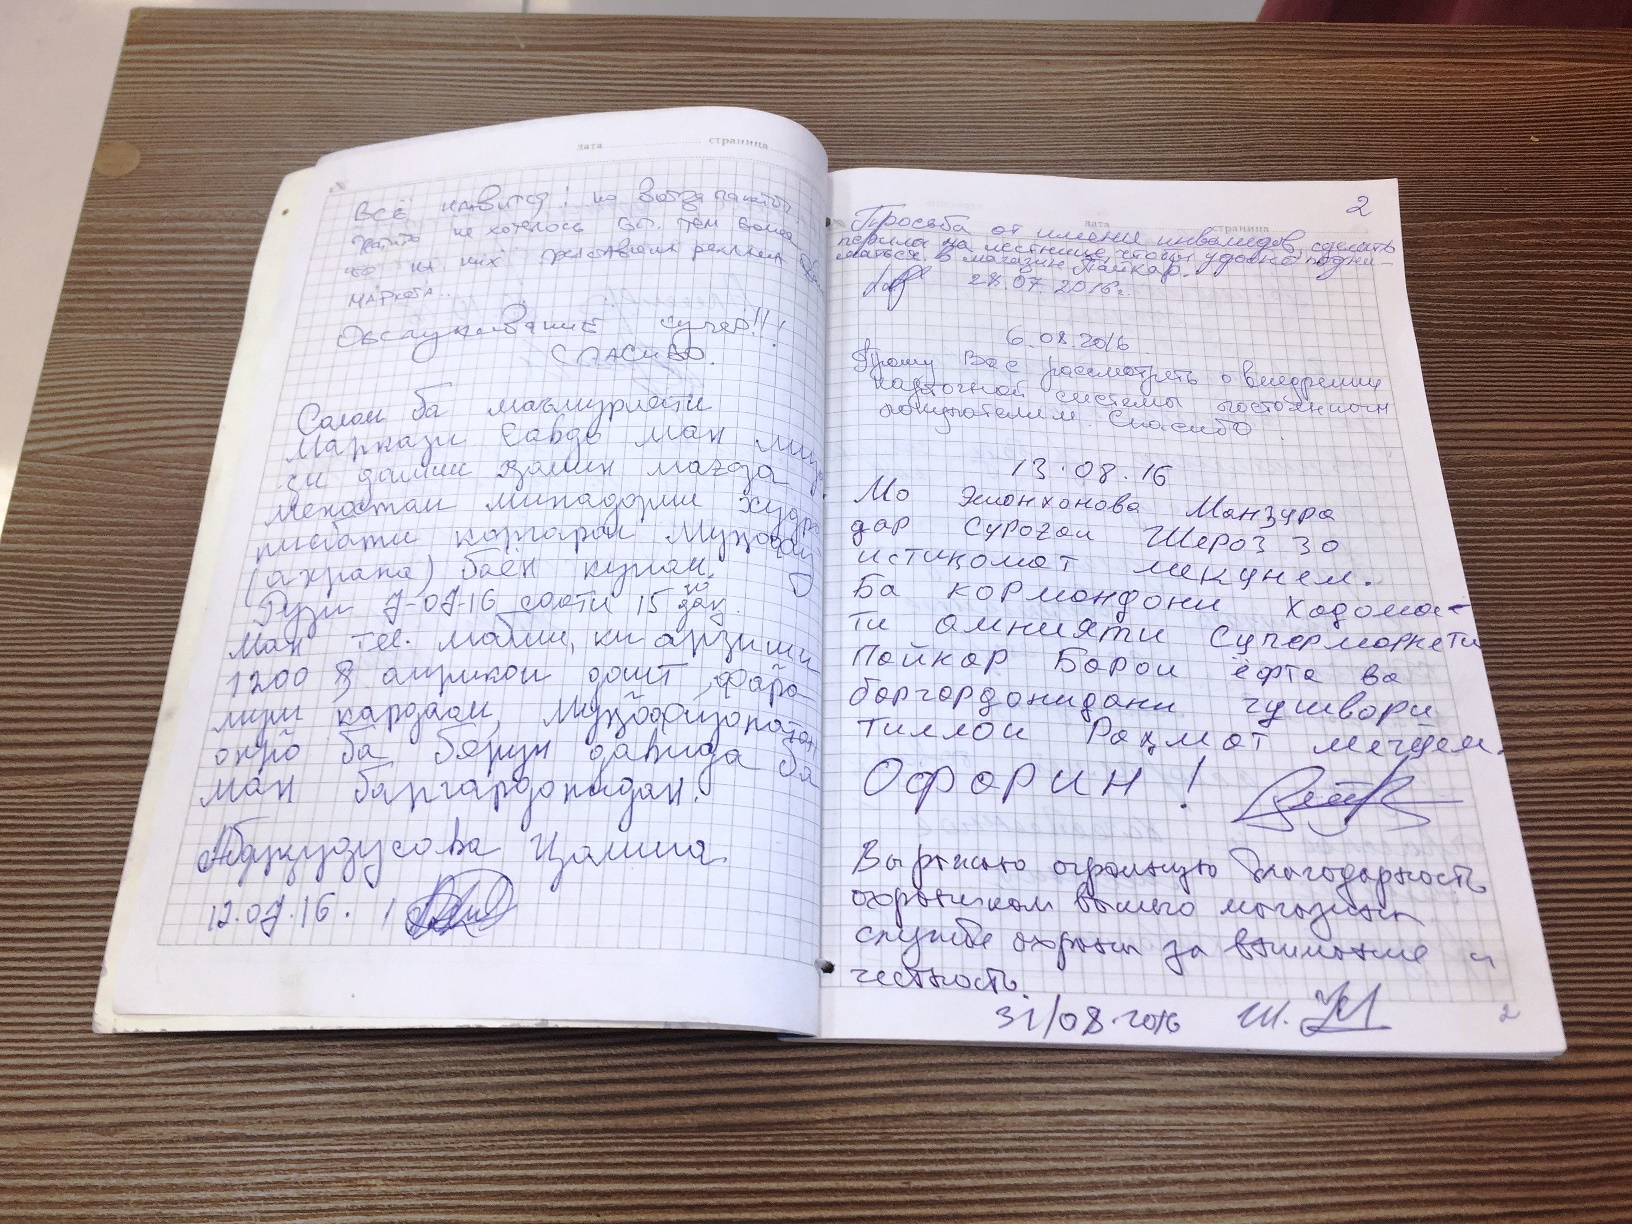 дата страница
Всё нравится! но
платить не хотелось бы. тем более
что на них реклама
маркета..
Обслуживание супер!!!
СПАСИБО.
Салом ба маъмурияти
Маркази Савдо ман
ин магоза
миннатдории худро
нисбати коргарон
(охрана) баён кунам.
Рузи 7-07-16 соати 15 10 дақ.
Ман тел. мобил, ки арзиши
1200 $ америкои дошт фаро-
муш кардам,
онҳо ба берун давида ба
ман баргардониданд.
Абдукудусова
12.07.16.
2
дата страница
Просьба от имени инвалидов сделать
перила на лестнице, чтобы удобно подни-
маться в магазин Пайкар.
28.07.2016г.
6.08.2016
Прошу Вас рассмотреть о внедрении
системы постоянным
покупателям. Спасибо.
13.08.16
Мо Эшонхонова Манзура
дар суроғаи Шероз 30
истиқомат мекунем.
Ба кормандони хадома-
ти амнияти супермаркети
Пайкар Барои ёфта ва
баргардонидани гушвори
тиллои Раҳмат мегуем.
Офарин!
Выражаю огромную благодарность
охранникам вашего магазина
службе охраны за внимание и
честность.
31/08.2016 Ш.
2